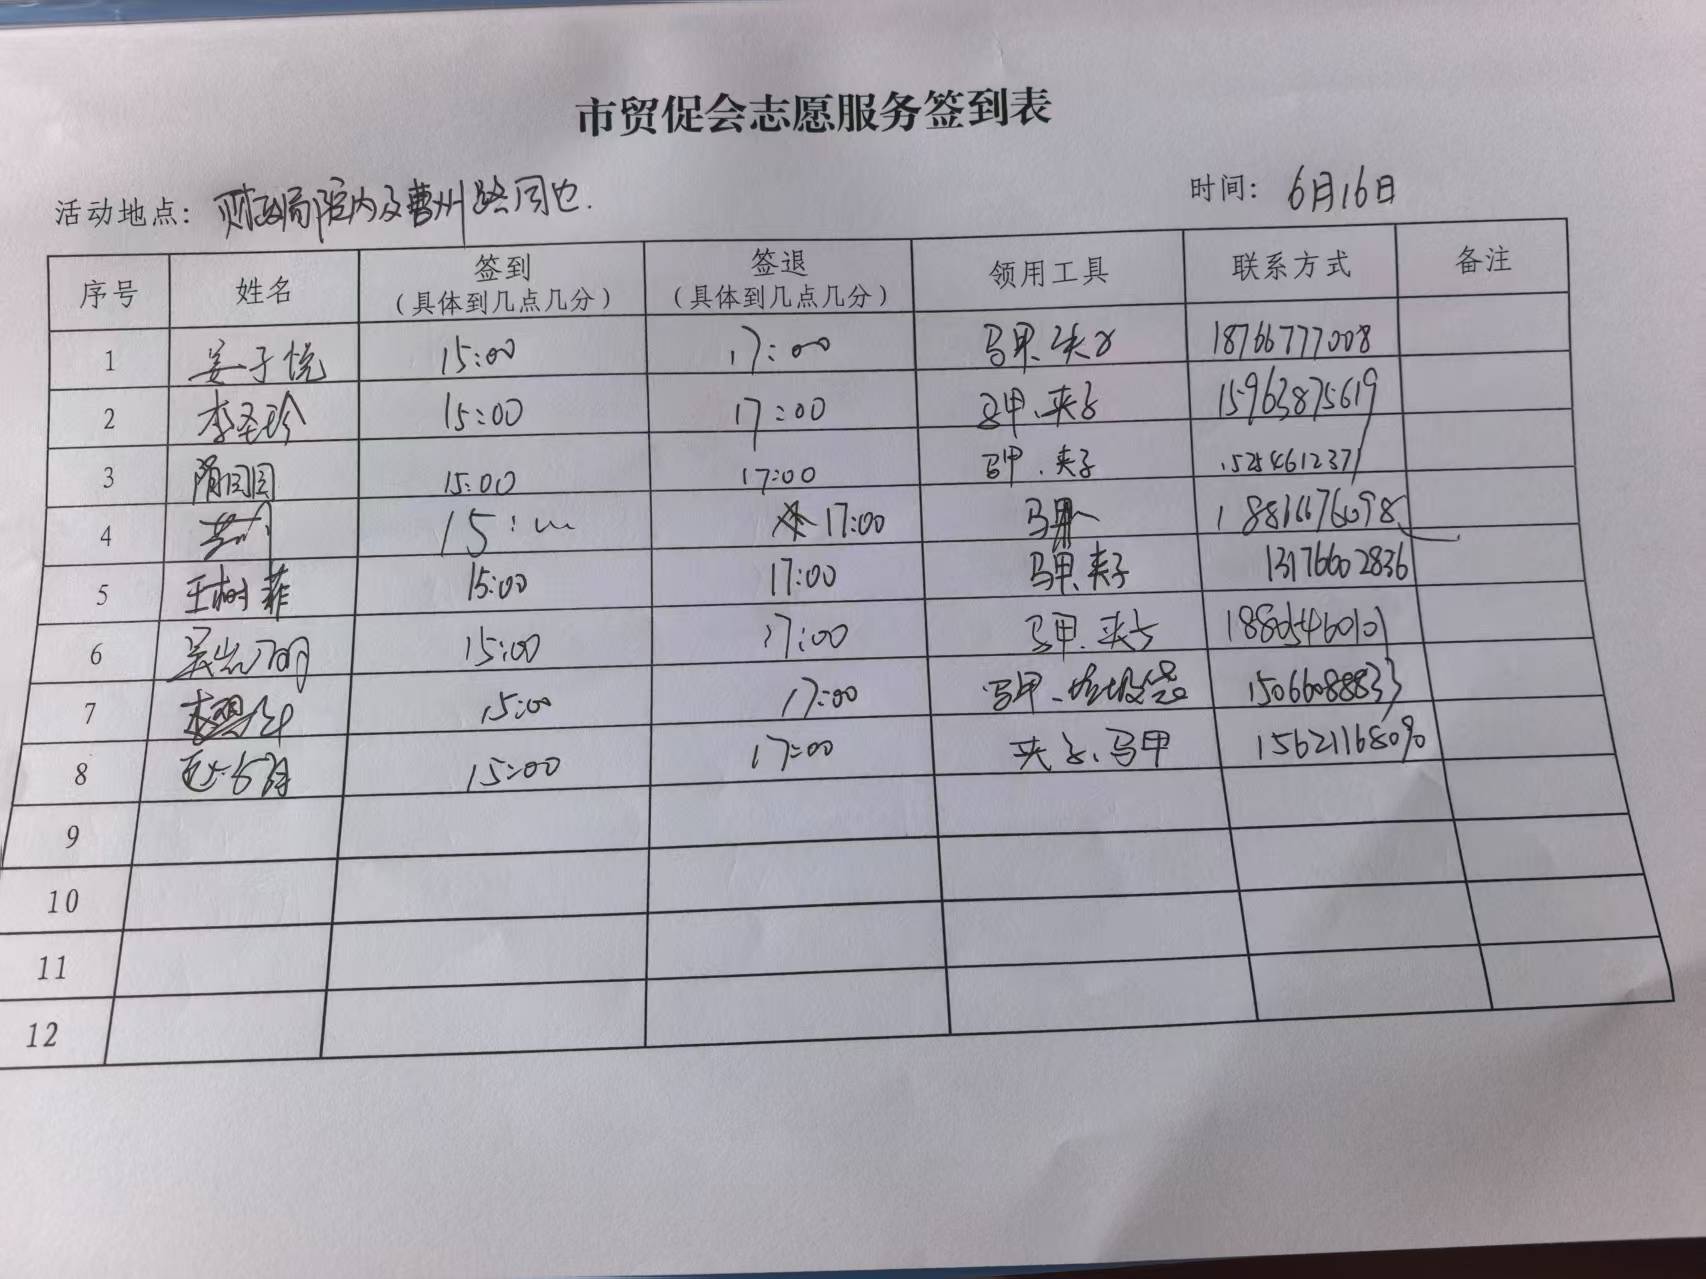 市贸促会志愿服务签到表
活动地点: 财政局院内及曹州路周边.
时间: 6月16日
序号 姓名 签到 签退 领用工具 联系方式 备注
(具体到几点几分) (具体到几点几分)
1 姜子悦 15:00 17:00 马甲、夹子 18766777008
2 李圣珍 15:00 17:00 马甲、夹子 15963875619
3 隋园园 15:00 17:00 马甲、夹子 15254612371
4 15: 17:00 马甲
5 王树菲 15:00 17:00 马甲、夹子 13176602836
6 15:00 17:00 马甲、夹子 18805460101
7 15:00 17:00 马甲、垃圾袋 15066088833
8 15:00 17:00 夹子、马甲
9
10
11
12